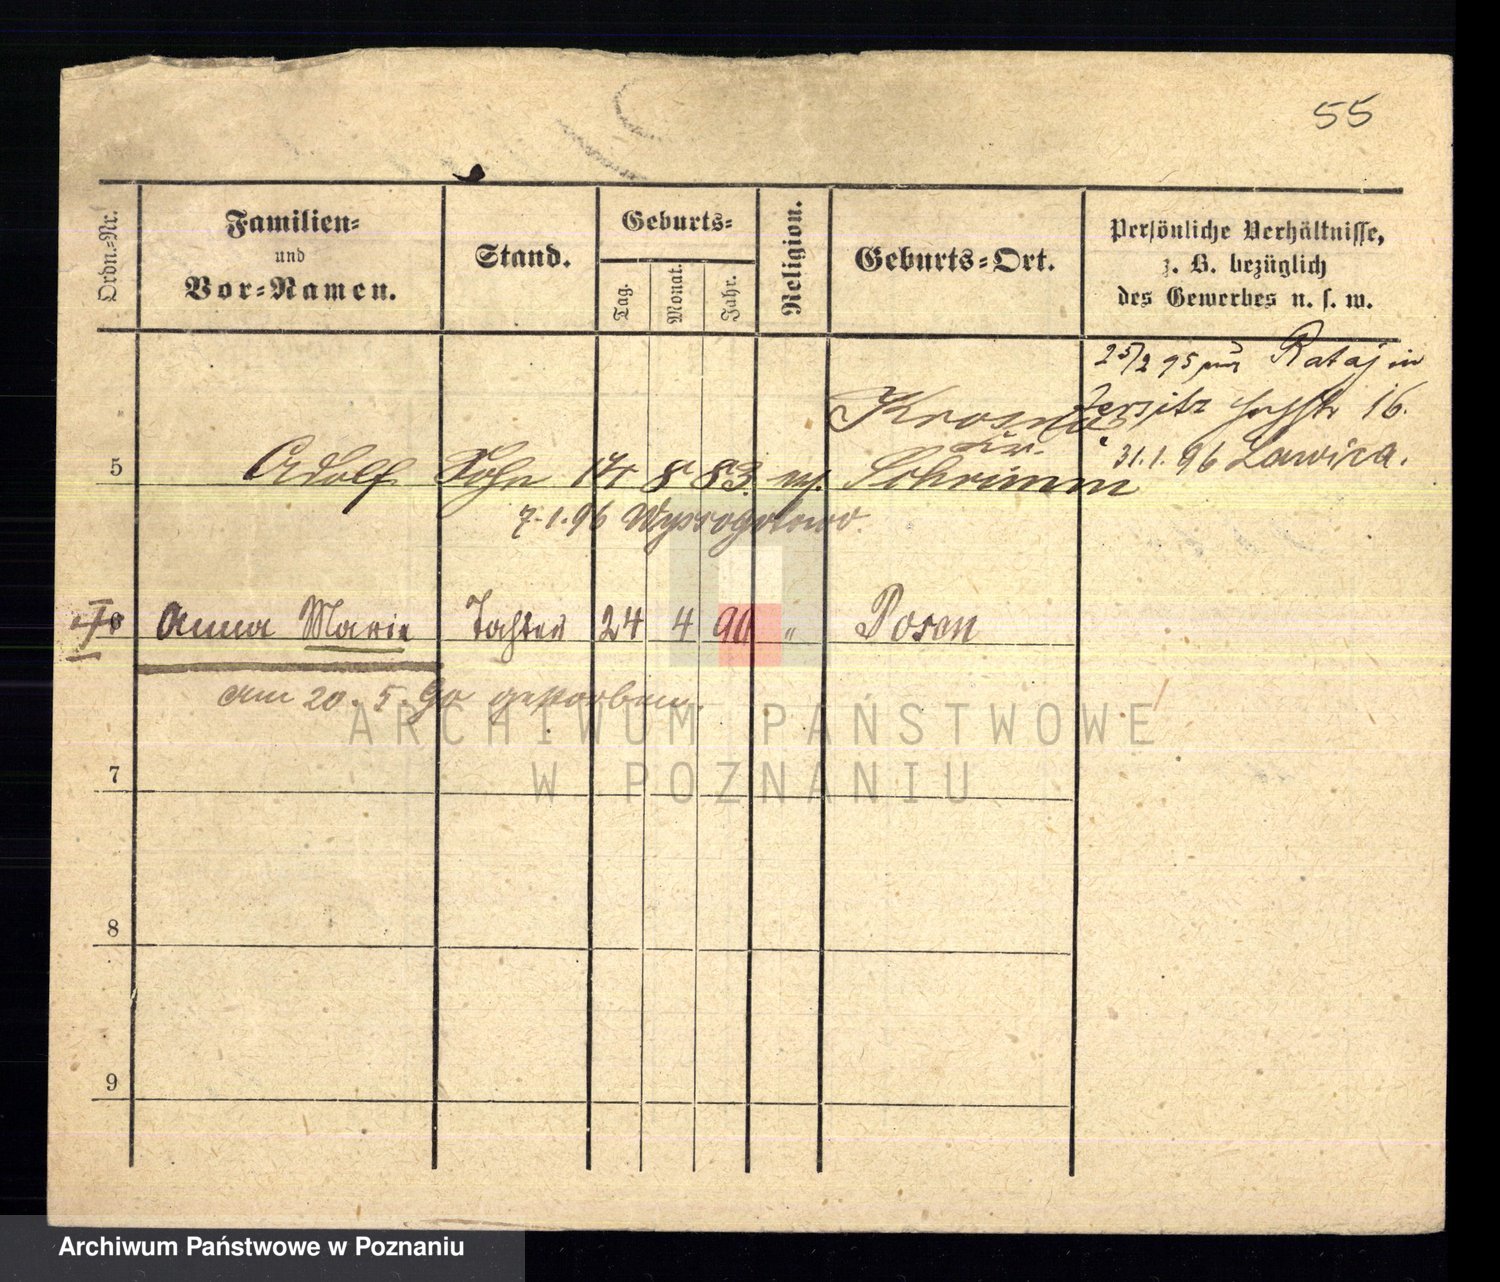 55
Ordn.-Nr.
Familien-
und
Vor-Namen.
Stand.
Geburts-
Tag.
Monat.
Jahr.
Religion.
Geburts-Ort.
Persönliche Verhältnisse,
z. B. bezüglich
des Gewerbes u. s. w.
25/2 95 Rataj in
Jersitz 16.
31.1.96 Lawica.
Krosno
Kr.
5 Adolf Sohn 17 8 83 Schrimm
7.1.96
6 Anna Marie Tochter 24 4 90 " Posen
am 20.5.90 gestorben.
7
8
9
ARCHIWUM PAŃSTWOWE
W POZNANIU
Archiwum Państwowe w Poznaniu